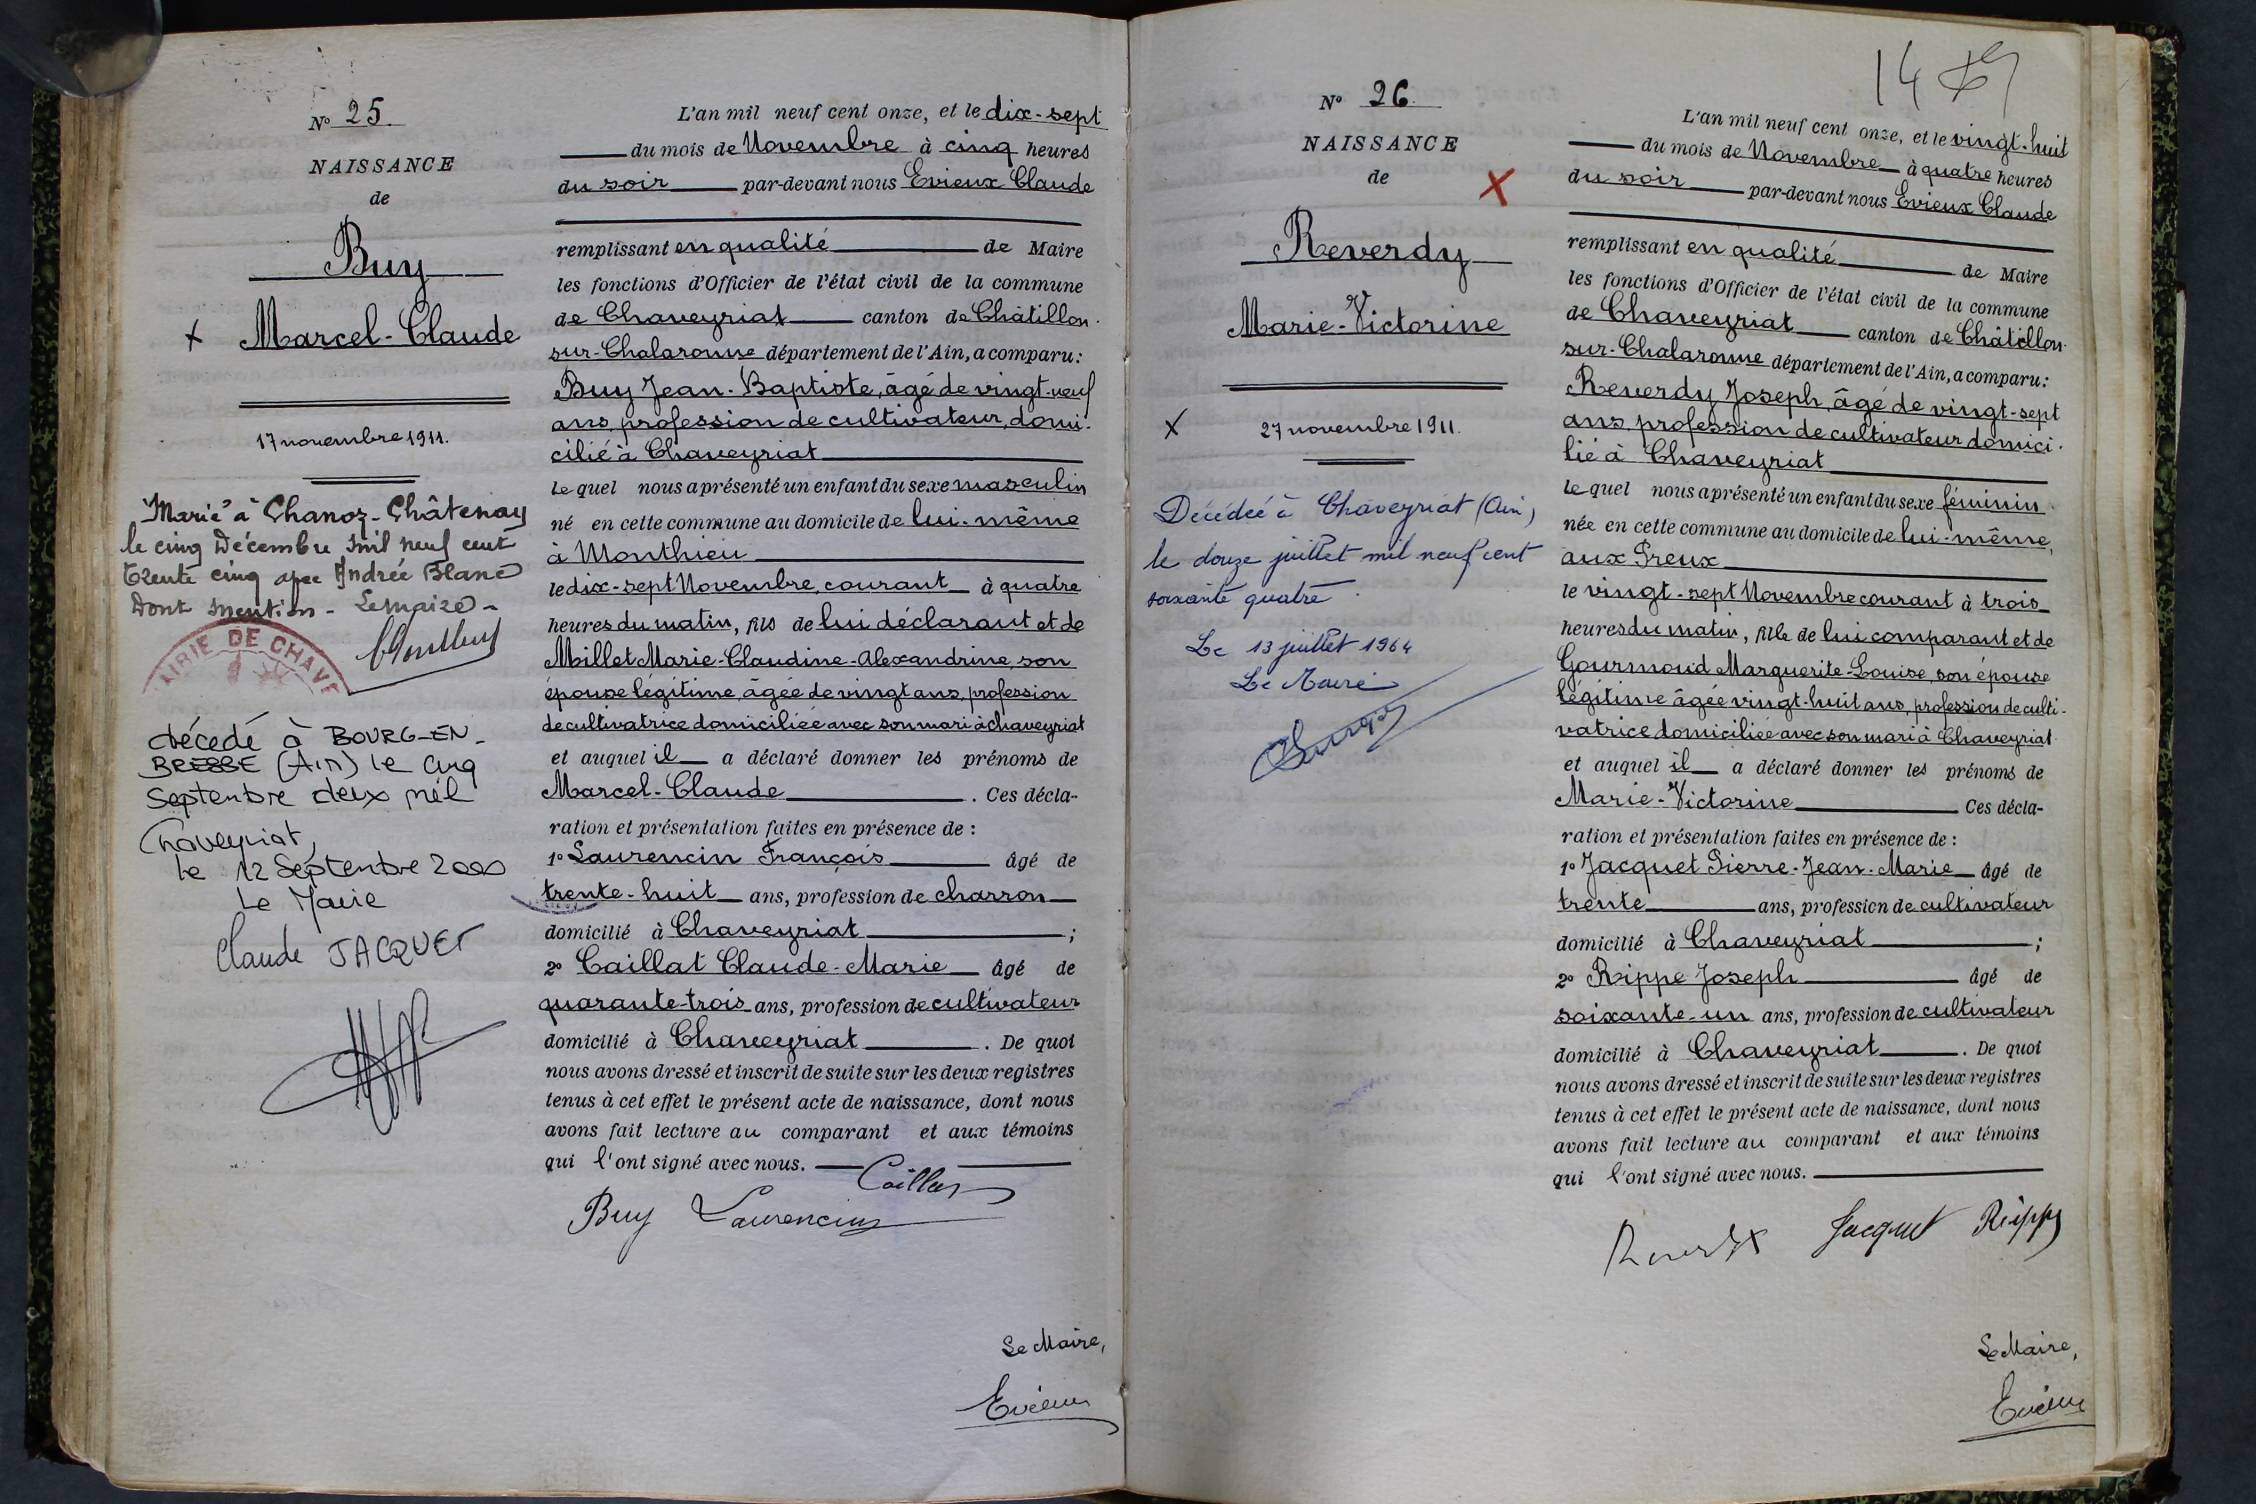 N° 25
NAISSANCE
de
Buy
+ Marcel-Claude
17 novembre 1911.
Marié à Chanoz-Châtenay
le cinq Décembre mil neuf cent
trente cinq avec Andrée Blanc
Dont mention - Le maire -
MAIRIE DE CHAVE
décédé à BOURG-EN-
BRESSE (Ain) le cinq
Septembre deux mil
Chaveyriat,
le 12 Septembre 2000
Le Maire
Claude JACQUET
L'an mil neuf cent onze, et le dix-sept
du mois de Novembre à cinq heures
du soir par-devant nous Evieux Claude
remplissant en qualité de Maire
les fonctions d'Officier de l'état civil de la commune
de Chaveyriat canton de Châtillon-
sur-Chalaronne département de l'Ain, a comparu:
Buy Jean-Baptiste, âgé de vingt-neuf
ans, profession de cultivateur, domi-
cilié à Chaveyriat
Lequel nous a présenté un enfant du sexe masculin
né en cette commune au domicile de lui-même
à Monthieu
le dix-sept Novembre, courant à quatre
heures du matin, fils de lui déclarant et de
Millet Marie-Claudine-Alexandrine, son
épouse légitime, âgée de vingt ans, profession
de cultivatrice domiciliée avec son mari à Chaveyriat
et auquel il a déclaré donner les prénoms de
Marcel-Claude. Ces décla-
ration et présentation faites en présence de :
1° Laurencin François âgé de
trente-huit ans, profession de charron
domicilié à Chaveyriat ;
2° Caillat Claude-Marie âgé de
quarante-trois ans, profession de cultivateur
domicilié à Chaveyriat. De quoi
nous avons dressé et inscrit de suite sur les deux registres
tenus à cet effet le présent acte de naissance, dont nous
avons fait lecture au comparant et aux témoins
qui l'ont signé avec nous. Caillat
Buy Laurencin
Le Maire,
Evieux
14
N° 26
NAISSANCE
de
X
Reverdy
Marie-Victorine
X 27 novembre 1911.
Décédée à Chaveyriat (Ain)
le douze juillet mil neuf cent
soixante quatre.
Le 13 juillet 1964
Le Maire
L'an mil neuf cent onze, et le vingt-huit
du mois de Novembre à quatre heures
du soir par-devant nous Evieux Claude
remplissant en qualité de Maire
les fonctions d'Officier de l'état civil de la commune
de Chaveyriat canton de Châtillon-
sur-Chalaronne département de l'Ain, a comparu:
Reverdy Joseph, âgé de vingt-sept
ans, profession de cultivateur domici-
lié à Chaveyriat
Lequel nous a présenté un enfant du sexe féminin
née en cette commune au domicile de lui-même,
aux Preux
le vingt-sept Novembre courant à trois
heures du matin, fille de lui comparant et de
Gourmond Marguerite-Louise, son épouse
légitime âgée vingt-huit ans, profession de culti-
vatrice domiciliée avec son mari à Chaveyriat
et auquel il a déclaré donner les prénoms de
Marie-Victorine Ces décla-
ration et présentation faites en présence de :
1° Jacquet Pierre-Jean-Marie âgé de
trente ans, profession de cultivateur
domicilié à Chaveyriat ;
2° Rippe Joseph âgé de
soixante-un ans, profession de cultivateur
domicilié à Chaveyriat. De quoi
nous avons dressé et inscrit de suite sur les deux registres
tenus à cet effet le présent acte de naissance, dont nous
avons fait lecture au comparant et aux témoins
qui l'ont signé avec nous.
Reverdy Jacquet Rippe
Le Maire,
Evieux